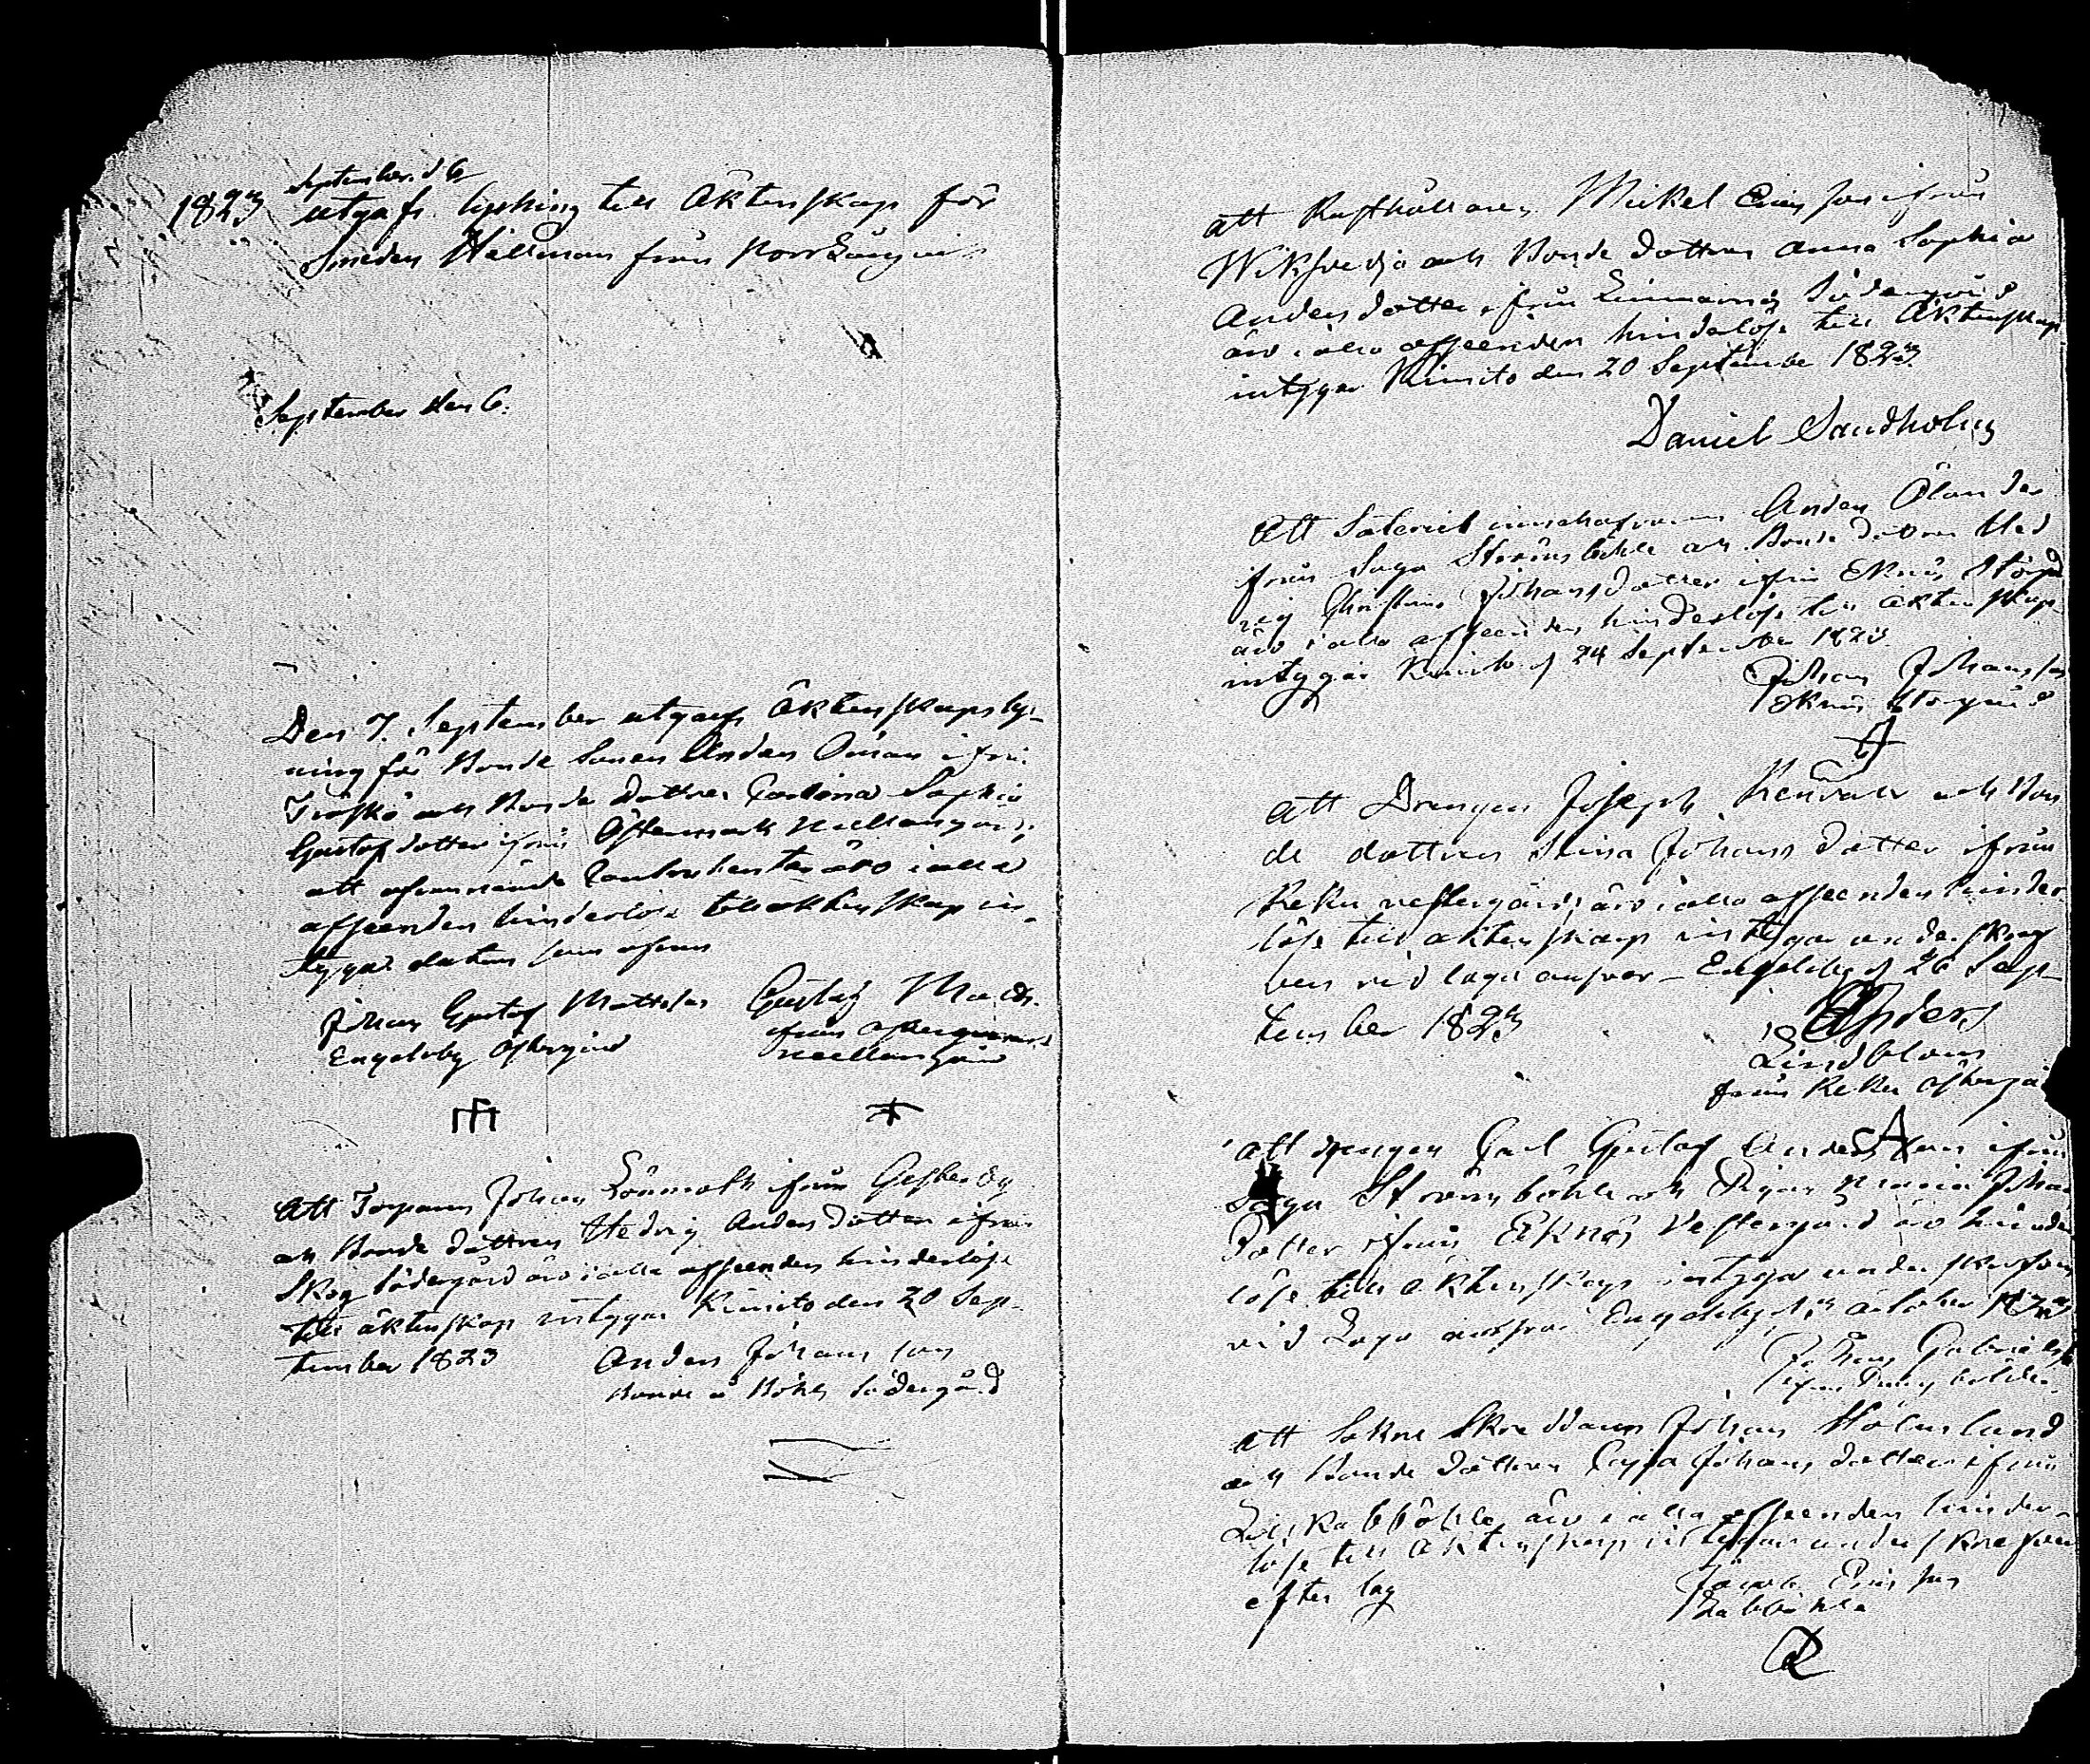 September d 6
1823 utgafs lysning till Äktenskap för
Smeden Hellman från Norrlångvik
September den 6.
Den 7. September utgafs Äktenskapsly-
ning för Bonde Sonen Anders Öman ifrå
Träskö och Bonde Dottren Carolina Sophia
Gustafsdotter ifrån Östermark Mellangård,
att ofvannämde Contrahenter äro i alla
afseenden hinderlöse till äktenskap in-
tygar datum som ofvan
Johan Gustaf Mattsson Gustaf Matts
Engelsby Östergård från
Mellangård
Att Torparen Johan Lönmark ifrån Gesterby
och Bonde Dottren Hedvig Anders Dotter ifrån
Skog Södergård äro i alla afseenden hinderlöse
till äktenskap intygar Kimito den 20 Sep-
tember 1823 Anders Johans son
Bonde å Böhle Södergård
att Rusthållaren Mickel Ericsson ifrån
Wiksvedja och Bonde Dottren Anna Sophia
Anders dotter ifrån Linnarnäs Södergård
äro i alla afseenden hinderlöse till Äktenskap
intygar Kimito den 20 September 1823.
Daniel Sandholm
Att Säteriet innehafvaren Anders Ölander
ifrån Sagu Strömsböhle och Bonde Dottren Hed
vig Christina Johans Dotter ifrån Eknäs Storgd
äro i alla afseenden hinderlöse till äktenskap
intygar Kimito d 24 September 1823.
Johan Johansson
Eknäs Storgård
Att Drengen Joseph Renvall och Bon
de dottren Stina Johans Dotter ifrån
Reku vestergård, äro i alla afseenden hinder
löse till äktenskap intygar underskref
ven vid laga ansvar - Engelsby d 26 Sep-
tember 1823
Anders
Lindblom
från Reku Östergå
att drengen Carl Gustaf Andersson ifrån
Sagu Strömsböhle och Pigan Maria Johans
Dotter ifrån Eknäs Vestergård äro hinder
löse till äktenskap intygar underskrefven
vid Laga ansvar Engelsby d October 1823
Johan Gabrielss
att Sokne Skreddaren Johan Holmlund
och Bonde Dottren Cajsa Johans dotter ifrån
Labböhle äro i alla afseenden hinder-
löse till Äktenskap intygar underskrefven
efter lag Jacob Ericsson
Labböhle